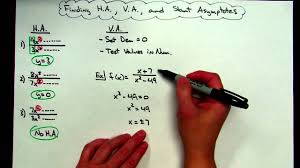 Finding H.A., V.A., and Slant Asymptotes
H.A.
1)
y=3
2)
y=0
3)
No H.A.
V.A.
- Set Den. = 0
- Test Values in Num.
Ex) f(x) = x+7 / x²-49
x²-49=0
x²=49
x=±7